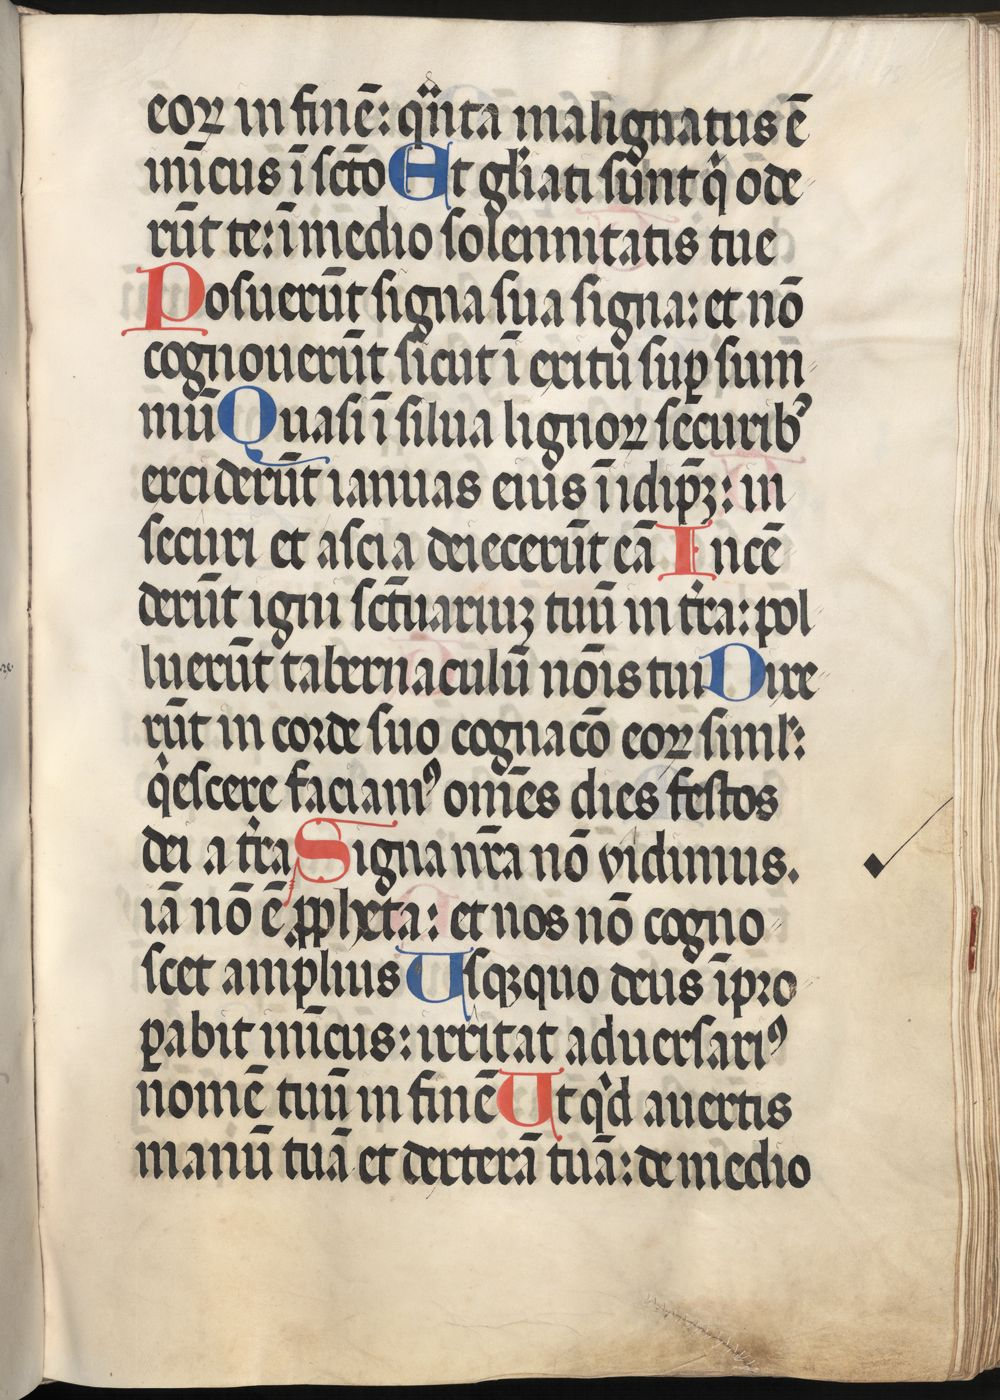 eoꝝ in finē: qͣnta malignatus ē
inīcus ī sc̄to Et gl̓iati sūnt qͥ ode
rūt te: ī medio solennitatis tue
Posuerūt signa sua signa: et nō
cognouerūt sicut ī exitū suꝑ sum
mū Quasi ī silua lignoꝝ securibꝰ
exciderūt ianuas eius ī idip̄ꝫ: in
securi et ascia deiecerūt eā Incē
derūt igni sc̄tuariuꝫ tuū in tr̄a: pol
luerūt tabernaculū nōis tui Dixe
rūt in corde suo cognacō eoꝝ siml̓:
qͥescere faciamꝰ omēs dies festos
dei a tr̄a Signa nr̄a nō vidimus.
iā nō ē ꝓpheta: et nos nō cogno
scet amplius Usqꝫquo deus īpro
ꝑabit inīcus: irritat aduersariꝰ
nomē tuū in finē Ut qͥd auertis
manū tuā et dexterā tuā: de medio